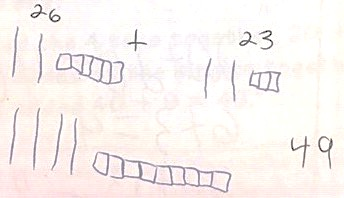 26 + 23
49